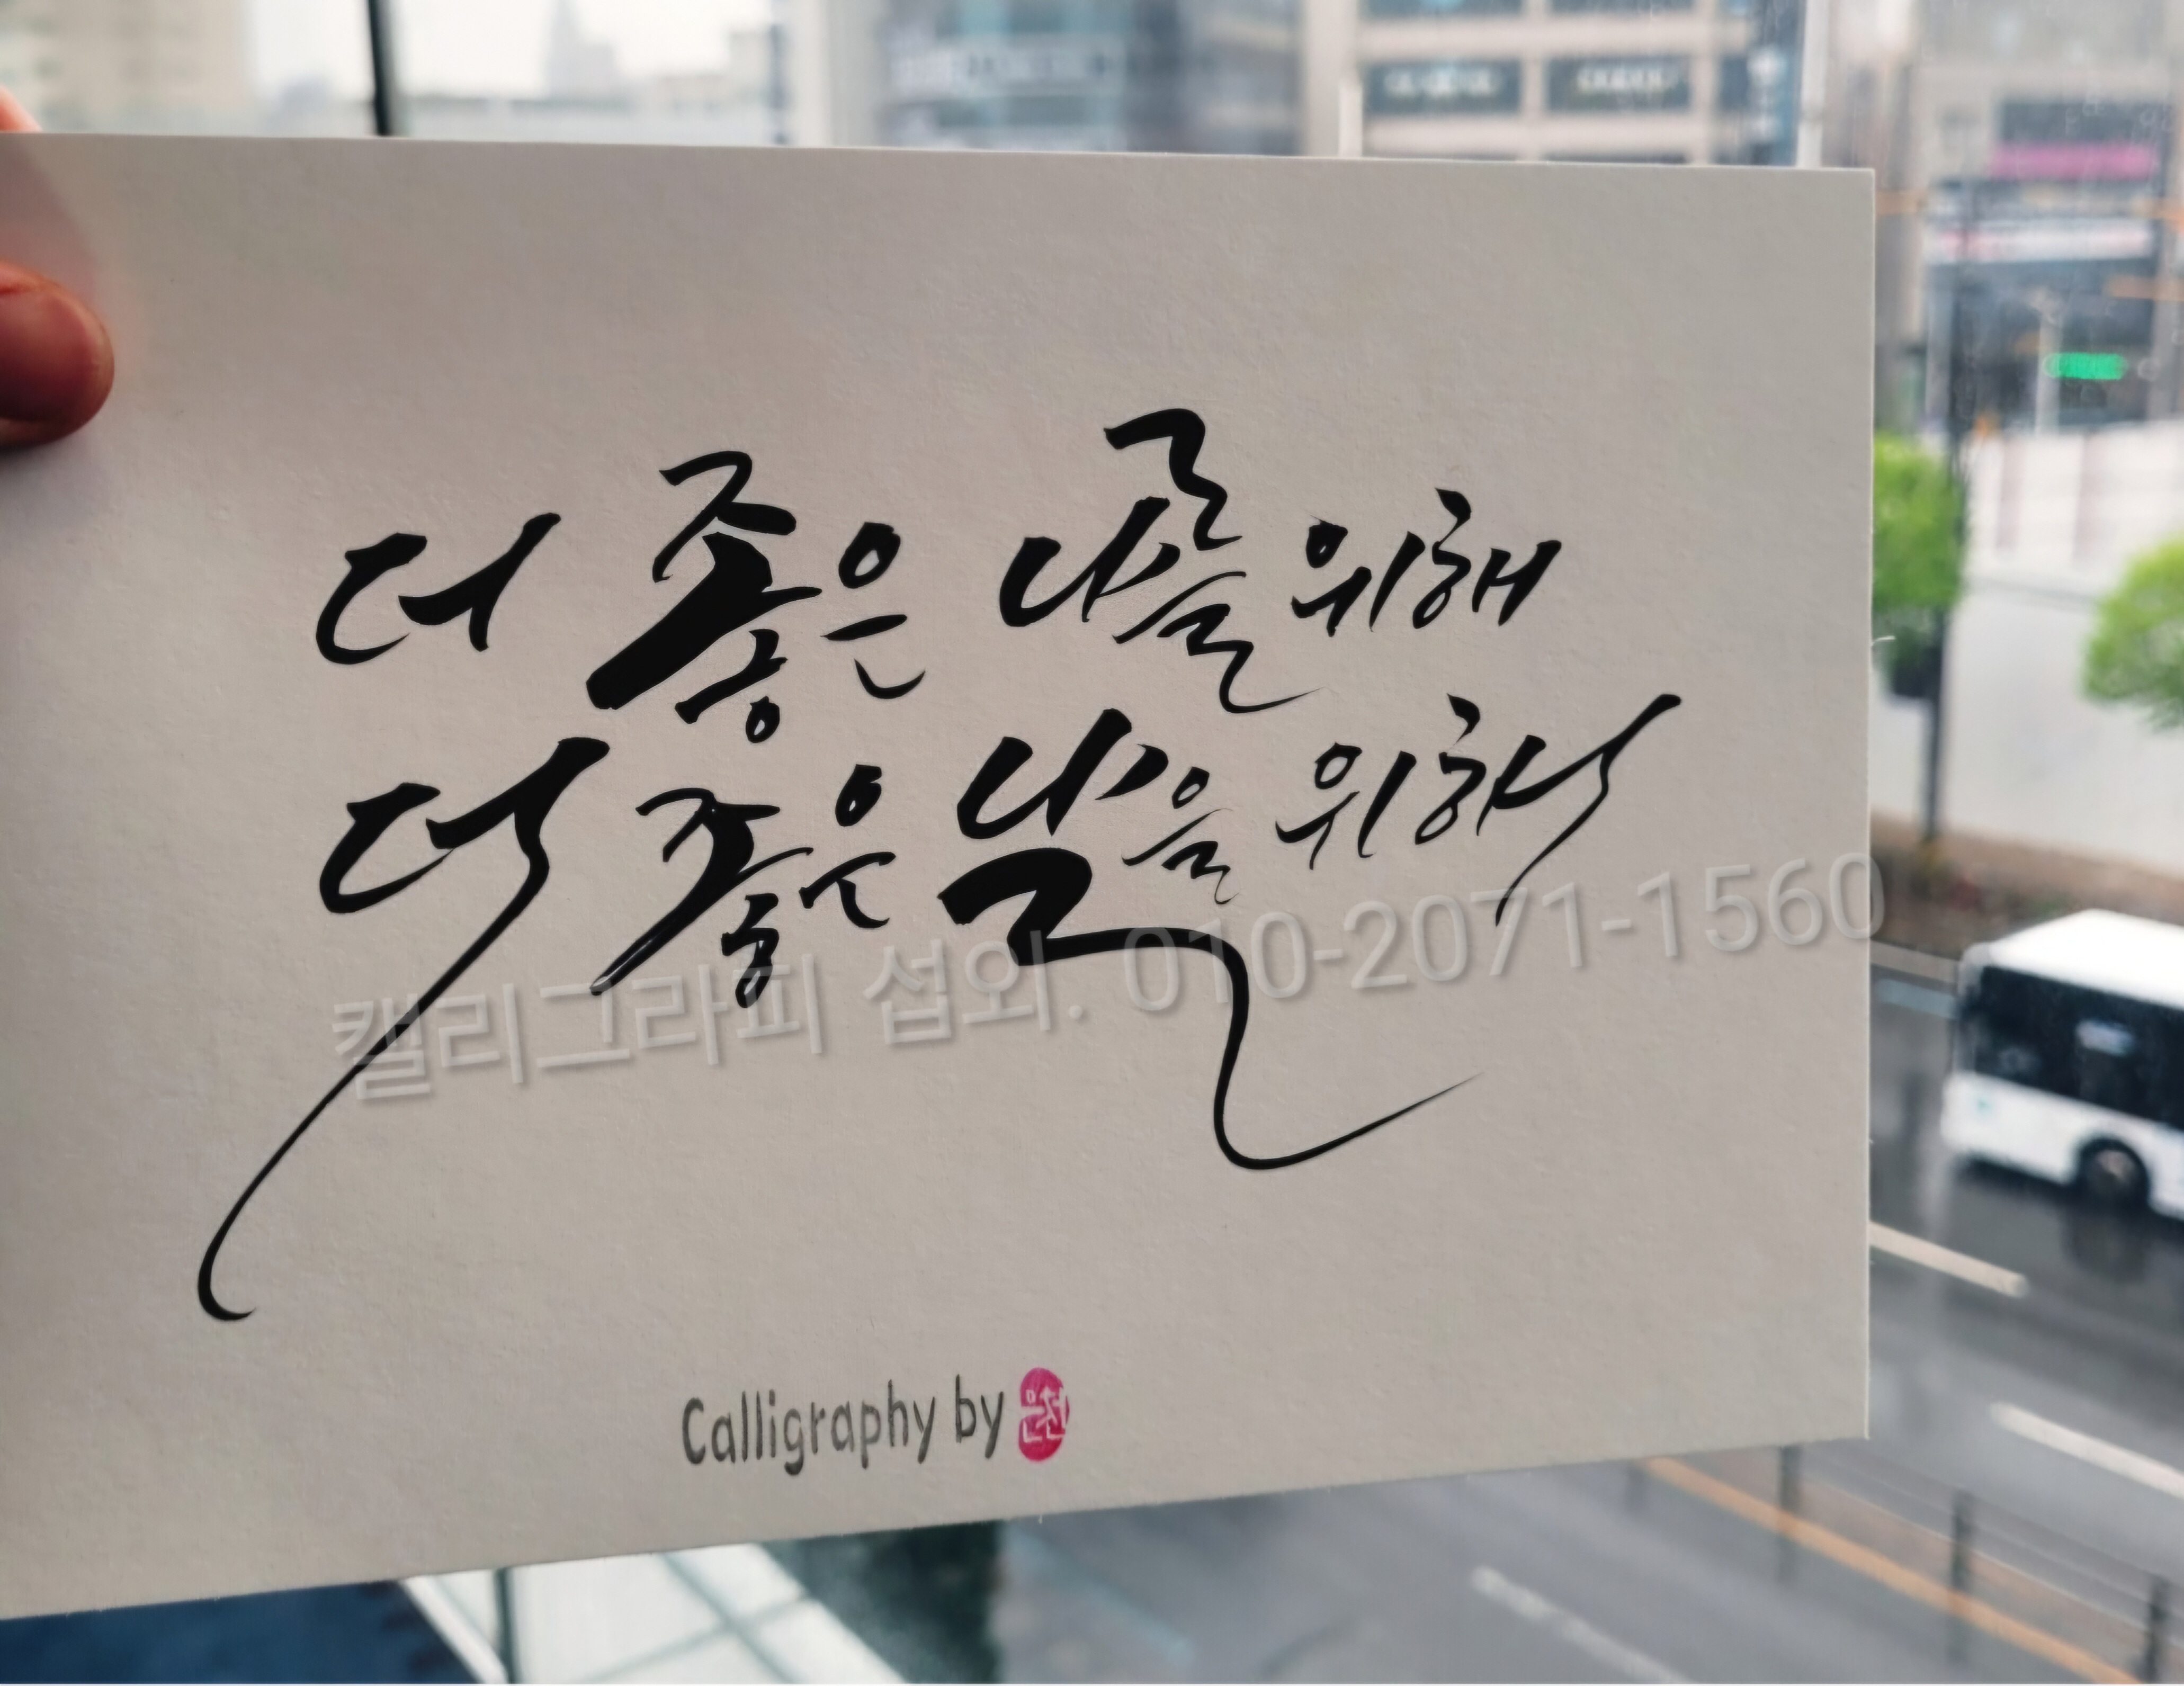 더 좋은 나를 위해
더 좋은 날을 위해
캘리그라피 섭외. 010-2071-1560
Calligraphy by